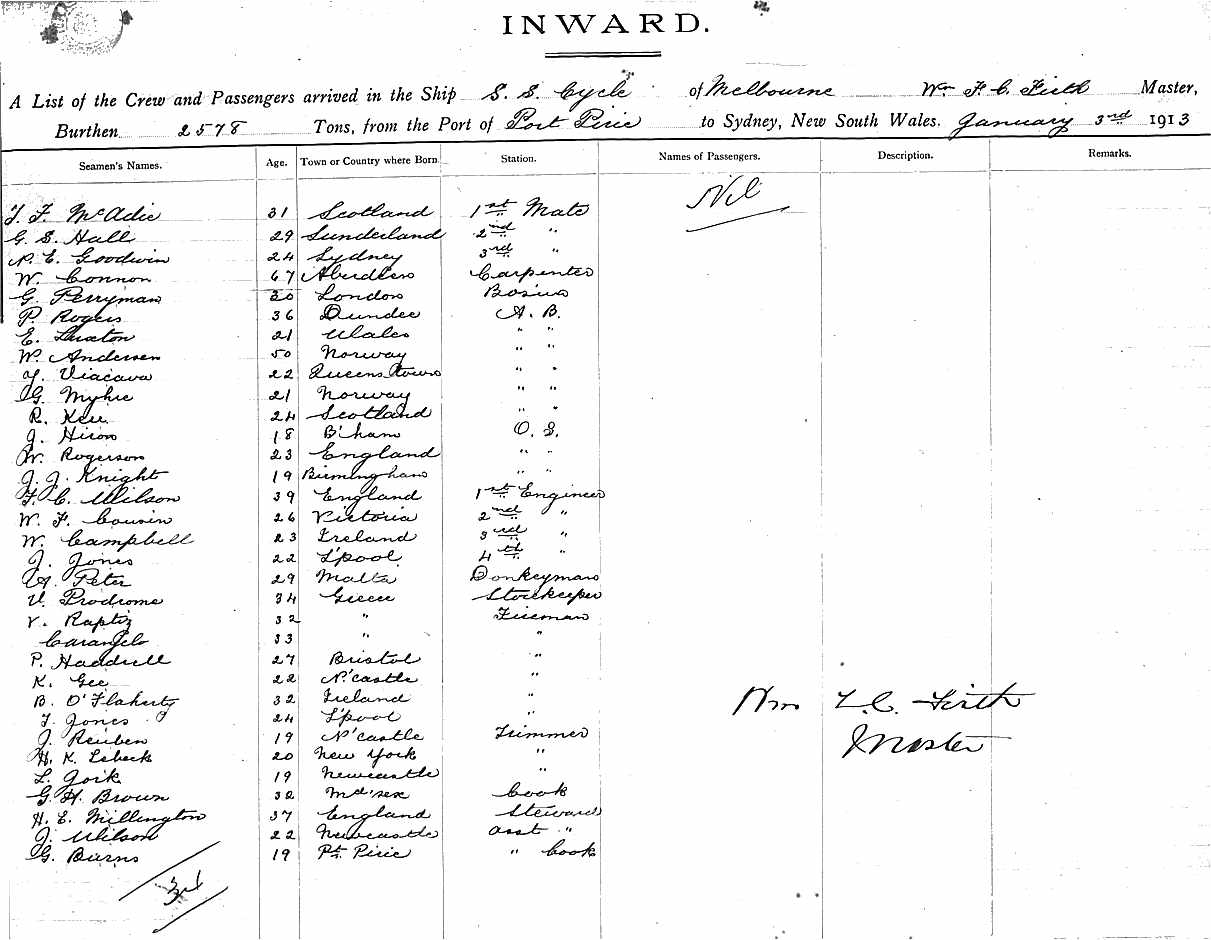 INWARD.
A List of the Crew and Passengers arrived in the Ship S. S. Cycle of Melbourne Wm F C. Firth Master,
Burthen 2578 Tons, from the Port of Port Pirie to Sydney, New South Wales. January 3rd 1913
Seamen's Names. Age. Town or Country where Born. Station. Names of Passengers. Description. Remarks.
Nil
T. F. McAdie 31 Scotland 1st Mate
G. S. Hall 29 Sunderland 2nd "
N. E. Goodwin 24 Sydney 3rd "
W. Connon 67 Aberdeen Carpenter
G. Perryman 30 London Bosun
P. Rogers 36 Dundee A. B.
E. Luxton 21 Wales " "
W. Andersen 50 Norway " "
Viacava 22 Queens Town " "
G. Myhre 21 Norway " "
R. Kerr 24 Scotland " "
J. Hiron 18 B'ham O. S.
W. Rogerson 23 England " "
J. J. Knight 19 Birmingham " "
F. C. Wilson 39 England 1st Engineer
W. F. Cousin 26 Victoria 2nd "
W. Campbell 23 Ireland 3rd "
J. Jones 22 L'pool 4th "
A. Peter 29 Malta Donkeyman
V. Prodrome 34 Greece Storekeeper
V. Raptis 32 " Fireman
Carangelo 33 " "
P. Haddrell 27 Bristol "
K. Gee 22 N'castle "
B. O'Flaherty 32 Ireland "
T. Jones 24 L'pool "
J. Reuben 19 N'castle Trimmer
H. K. Lebeck 20 New York "
L. Gork 19 Newcastle "
G. H. Brown 32 Md'sex Cook
H. E. Millington 37 England Steward
J. Wilson 22 Newcastle asst "
G. Burns 19 Pt. Pirie " Cook
Wm F. C. Firth
Master